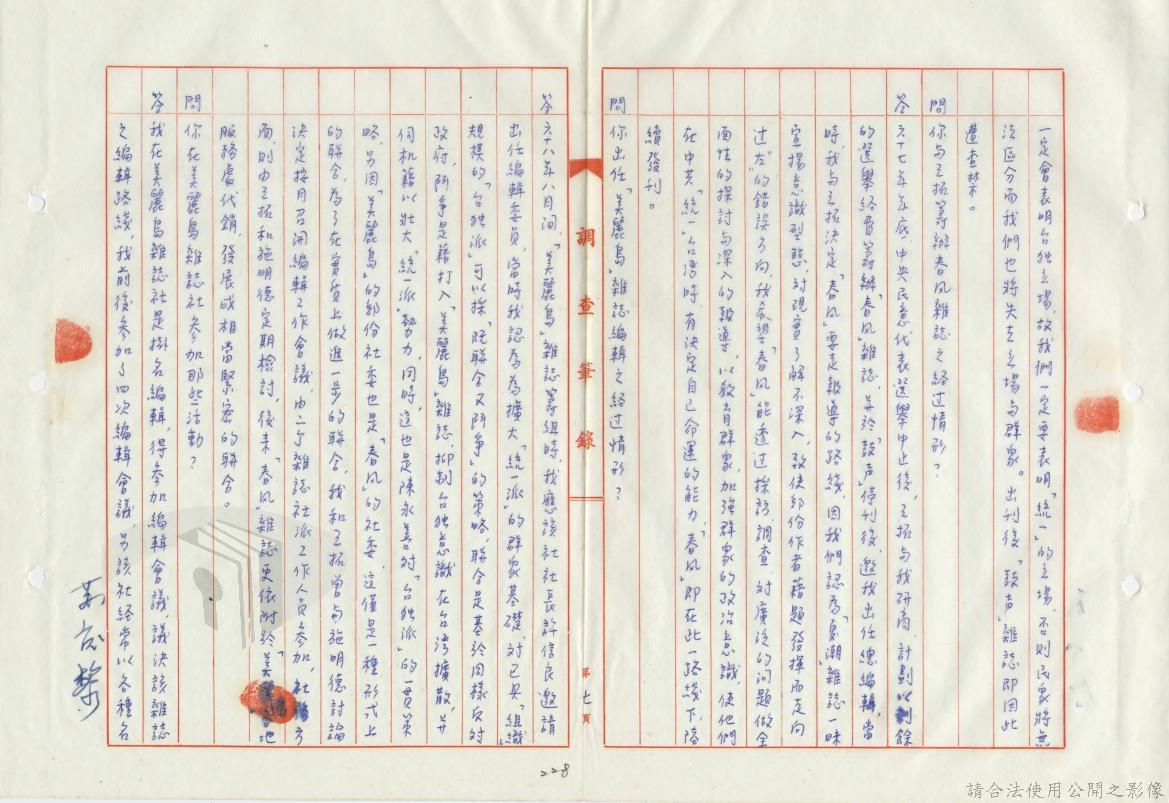 一定會表明台独立場，故我們一定要表明「統一」的立場，否則民眾將無
法區分而我們也將失去立場与群眾。出刊後「鼓声」雜誌即因此
遭查禁。
問 你与王拓籌辦春風雜誌之経过情形？
答 六十七年年底，中央民意代表選舉中止後，王拓与我研商，計劃以剩餘
的選舉経費籌辦「春風」雜誌，並於「鼓声」停刊後，邀我出任總編輯，當
時，我与王拓決定「春風」要走報導的路綫，因我們認為「夏潮」雜誌一昧
宣揚意識型態，对現實了解不深入，致使部份作者藉題發揮而走向
过左"的錯誤方向，我希望「春風」能透过採訪、調查，对廣泛的问題做全
面性的探討与深入的報導，以教育群眾，加強群眾的政治意識，使他們
在中共「統一」台湾時，有決定自己命運的能力，「春風」即在此一路綫下，陸
續發刊。
問 你出任「美麗島」雜誌編輯之経过情形？
調查筆錄
第七頁
答 六十八年八月间，「美麗島」雜誌籌組時，我應該社社長許信良邀請
出任編輯委員，當時我認為為擴大「統一派」的群眾基礎，对已具「組織
規模的「台独派」可以採「既联合又鬥争」的策略，联合是基於同樣反对
政府，鬥争是藉打入「美麗島」雜誌，抑制台独意識在台湾擴散，并
伺机籍以壮大「統一派」勢力，同時，這也是陳永善对「台独派」的一貫策
略，另因「美麗島」的部份社委也是「春風」的社委，這僅是一種形式上
的联合，為了在實質上做進一步的联合，我和王拓曾与施明德討論
決定按月召開編輯工作會議，由二個雜誌社派工作人員參加，社務方
面，則由王拓和施明德定期檢討，後来「春風」雜誌更依附於「美麗島」各地
服務處代銷，發展成相當緊密的联合。
問 你在美麗島雜誌社參加那些活動？
答 我在美麗島雜誌社是掛名編輯，得參加編輯會議，議決該雜誌
之編輯路綫，我前後參加了四次編輯會議，另該社経常以各種名
228
請合法使用公開之影像